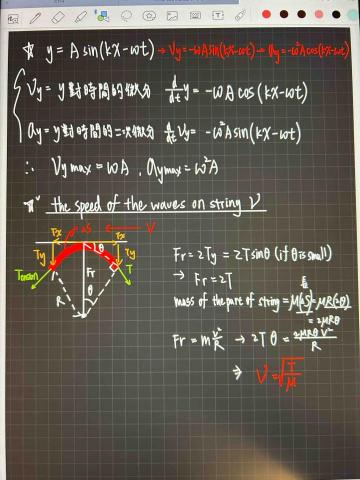 ☆ y = A sin(kx-ωt) → Vy = -ωA sin(kx-ωt) → ay = -ω²A cos(kx-ωt)
Vy = y對時間的微分 d/dt y = -ωA cos(kx-ωt)
ay = y對時間的二次微分 d/dt Vy = -ω²A sin(kx-ωt)
∴ Vy max = ωA , ay max = ω²A
☆ the speed of the waves on string V
Tx ΔS Tx V
θ
Ty Ty
Tension Fr T
R θ
Fr = 2Ty = 2T sinθ (if θ is small)
→ Fr = 2T
mass of the part of string = μ(ΔS) = μR(2θ)
= 2μRθ
Fr = m V²/R → 2Tθ = 2μRθ V²/R
⇒ V = √(T/μ)